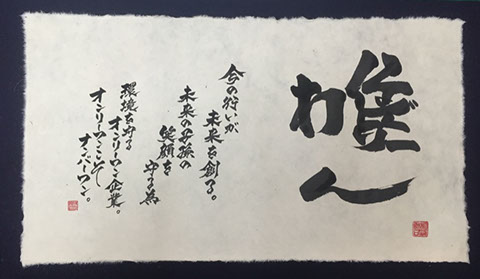 唯わん
今の行いが
未来を創る。
未来の子孫の
笑顔を
守る為
環境を守る
オンリーワン企業。
オンリーワンにして
ナンバーワン。